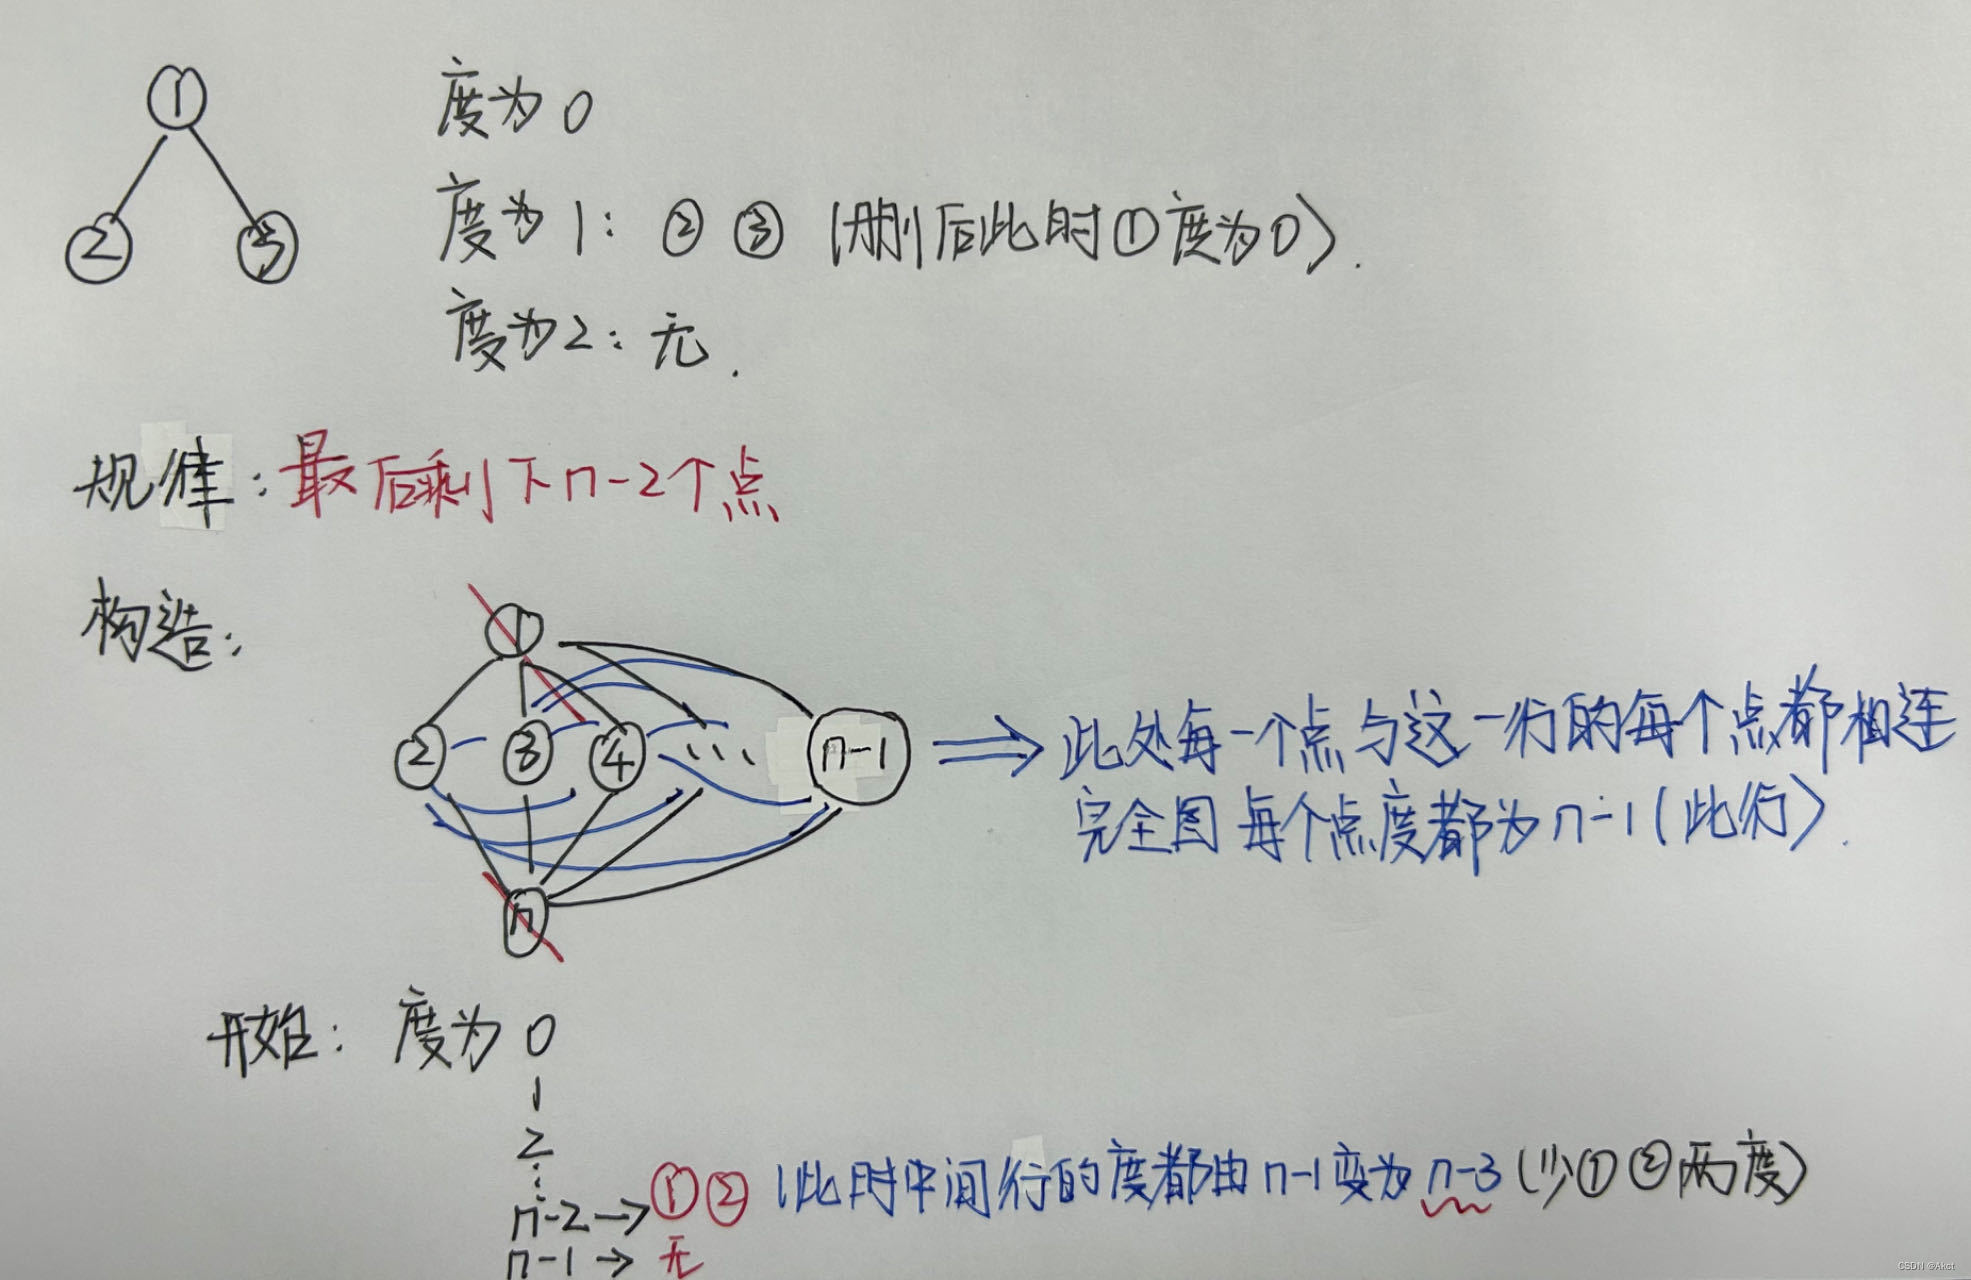 ①
② ③
度为 0
度为 1: ② ③ (删后此时①度为0).
度为2: 无.
规律: 最后剩下n-2个点
构造:
①
② ③ ④ ... n-1
n
⇒ 此处每一个点与这一行的每个点都相连
完全图 每个点度都为n-1(此行).
开始: 度为 0
1
2
⋮
n-2 → ① ② (此时中间行的度都由n-1变为n-3(少①②两度)
n-1 → 无
CSDN @Akct